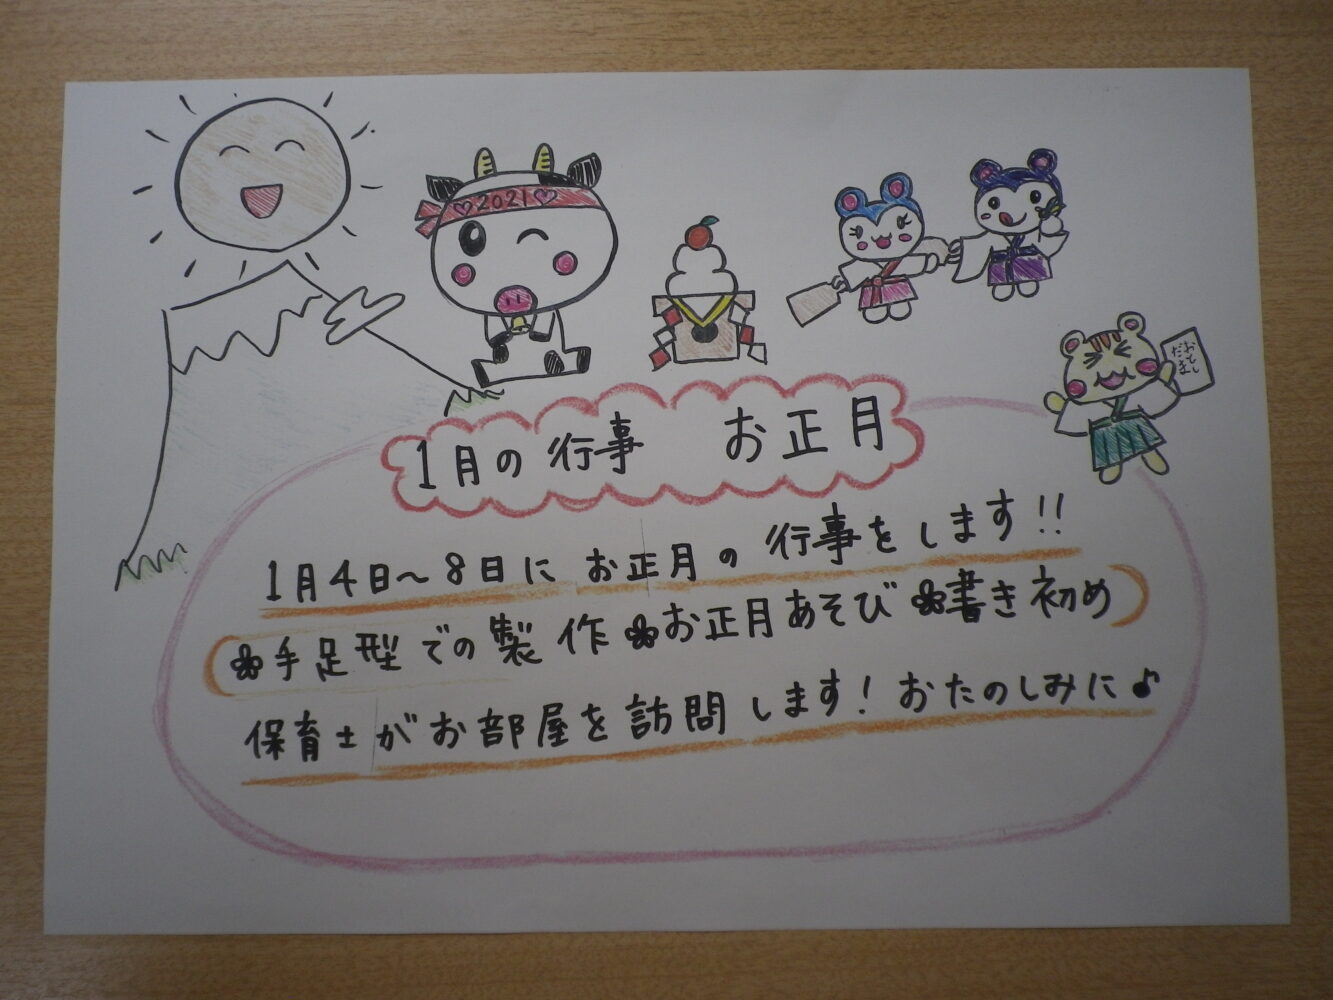 ♡2021♡
おとし
だま
1月の行事 お正月
1月4日～8日に お正月の 行事をします!!
(✿手足型での製作 ✿お正月あそび ✿書き初め)
保育士がお部屋を訪問します! おたのしみに♪